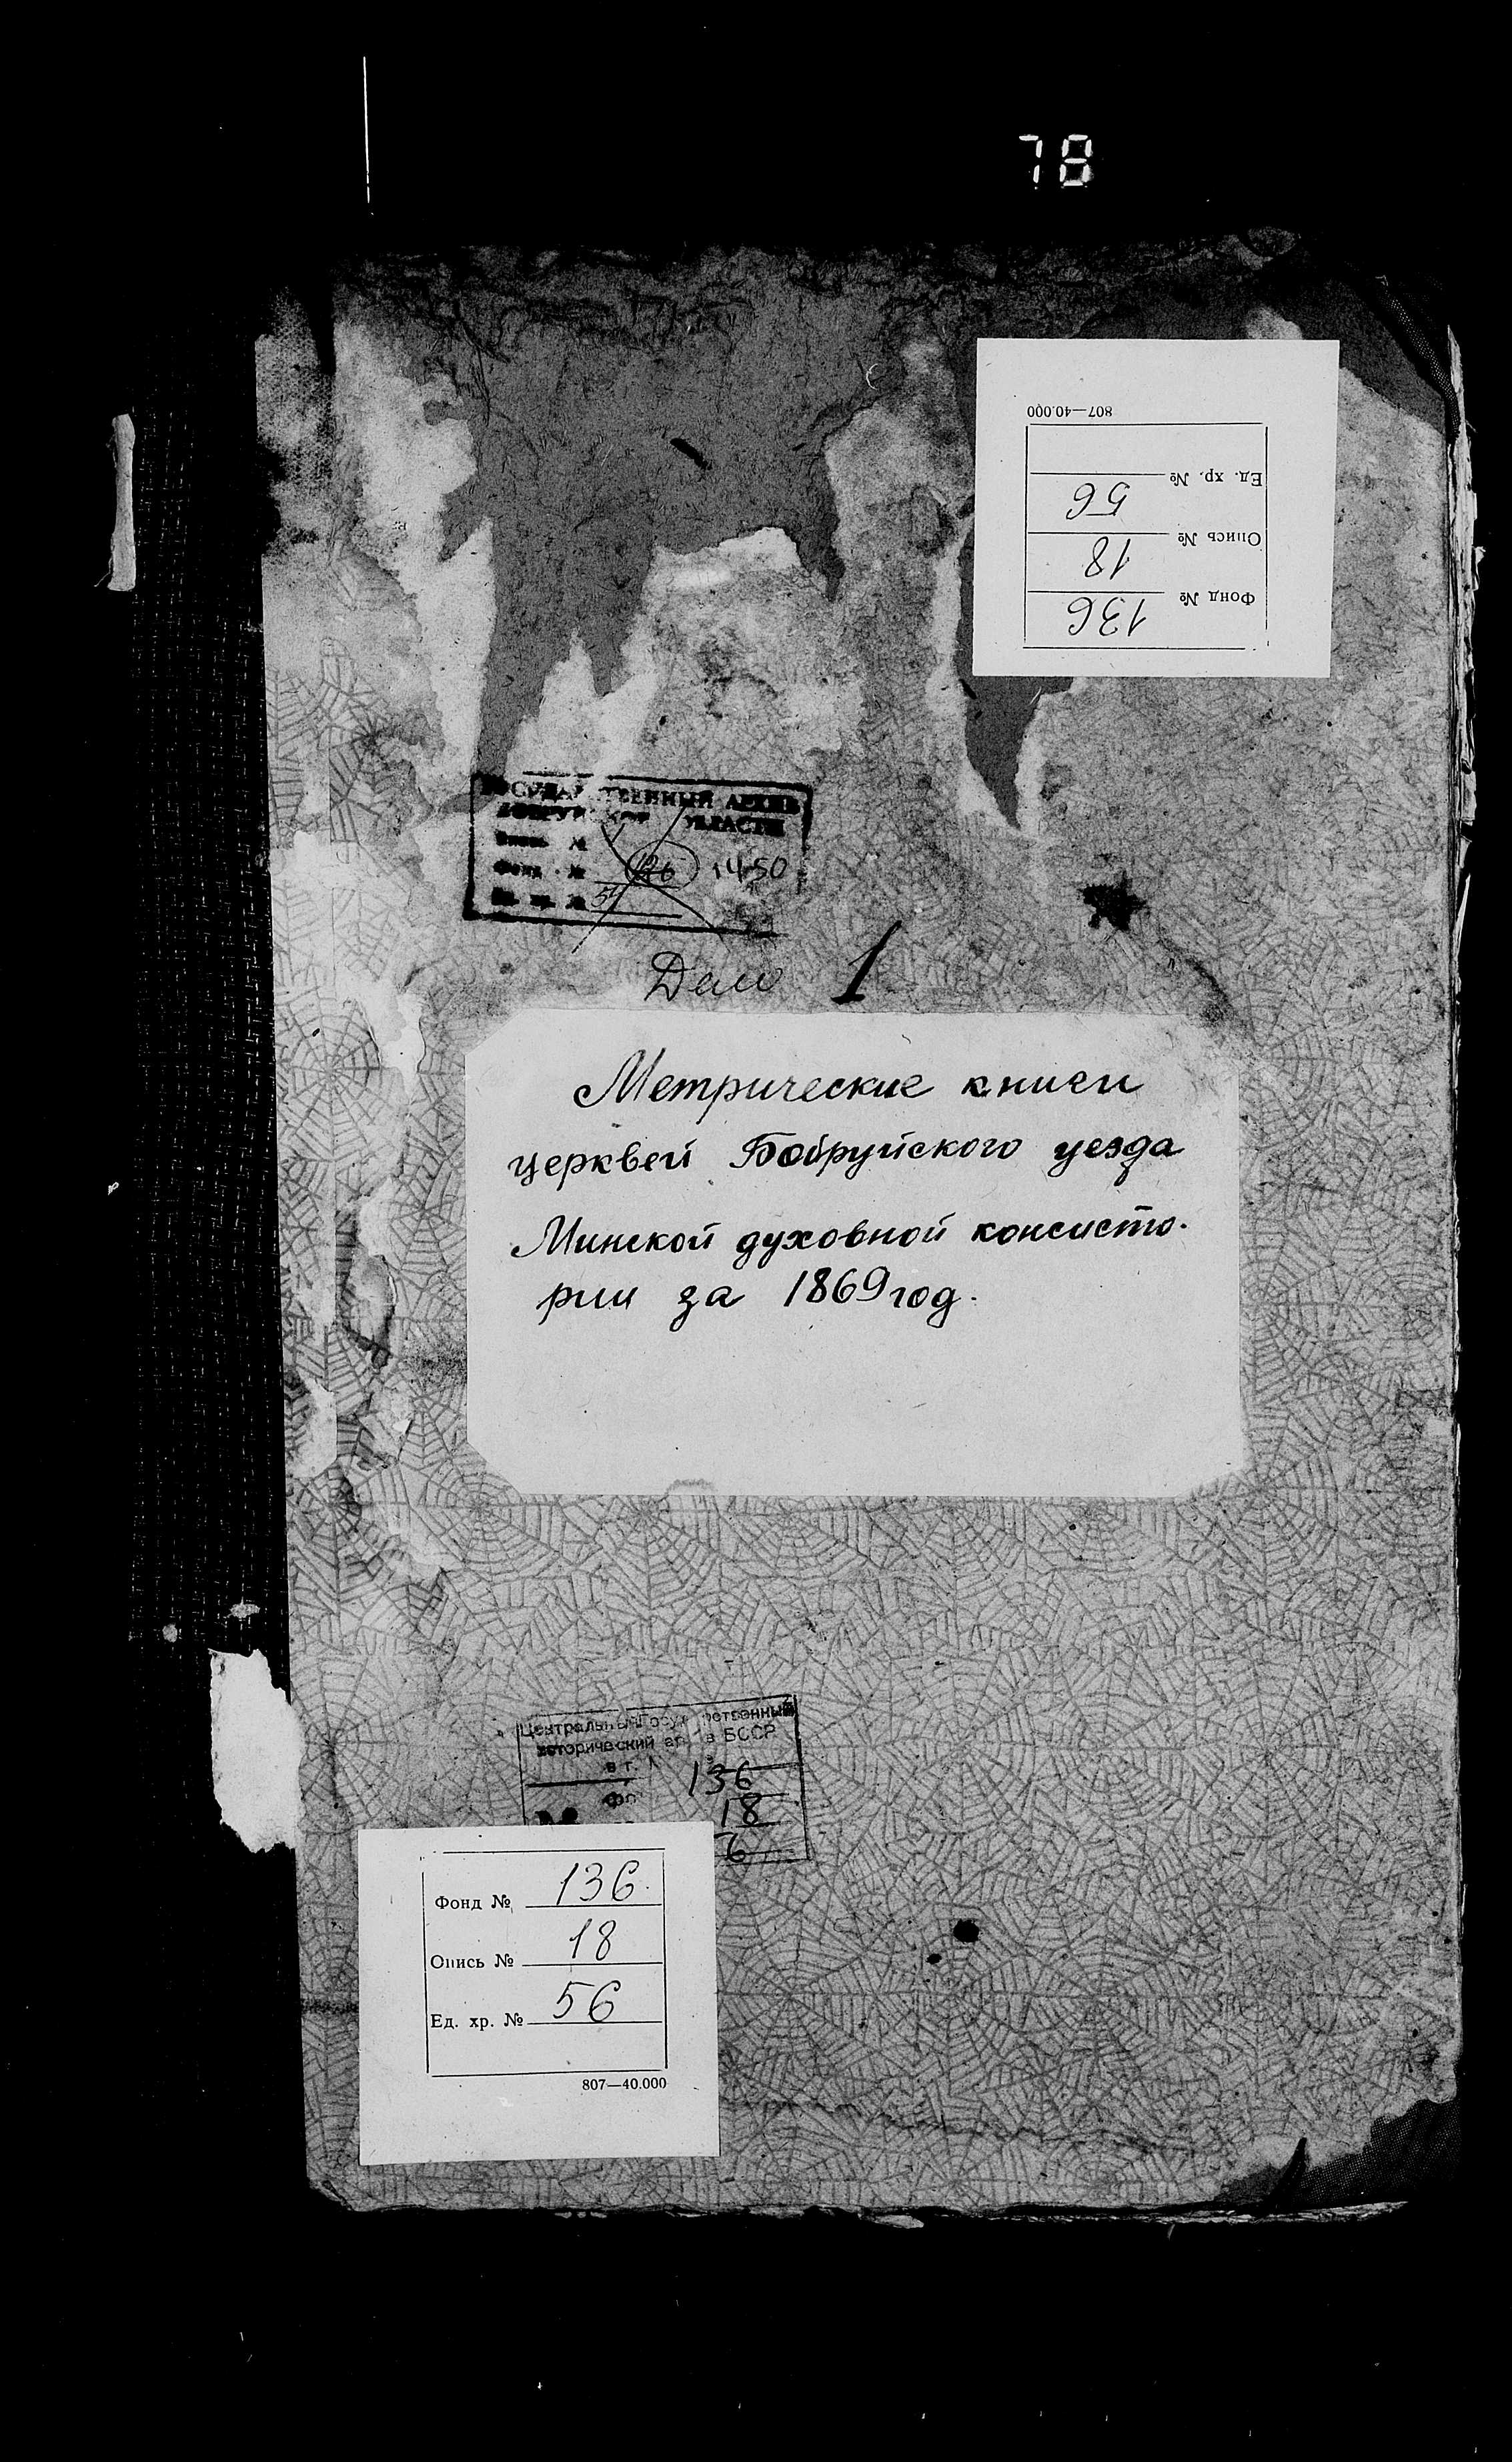 78
807—40.000
Ед. хр. № 56
Опись № 18
Фонд № 136
ГОСУДАРСТВЕННЫЙ АРХИВ
БОБРУЙСКОЙ ОБЛАСТИ
Опись №
Фонд №
1450
Ед. хр. №
Дело 1
Метрические книги
церквей Бобруйского уезда
Минской духовной консисто-
рии за 1869 год.
Центральный Государственный
исторический архив БССР
в г.
136
18
6
Фонд № 136.
Опись № 18
Ед. хр. № 56
807—40.000